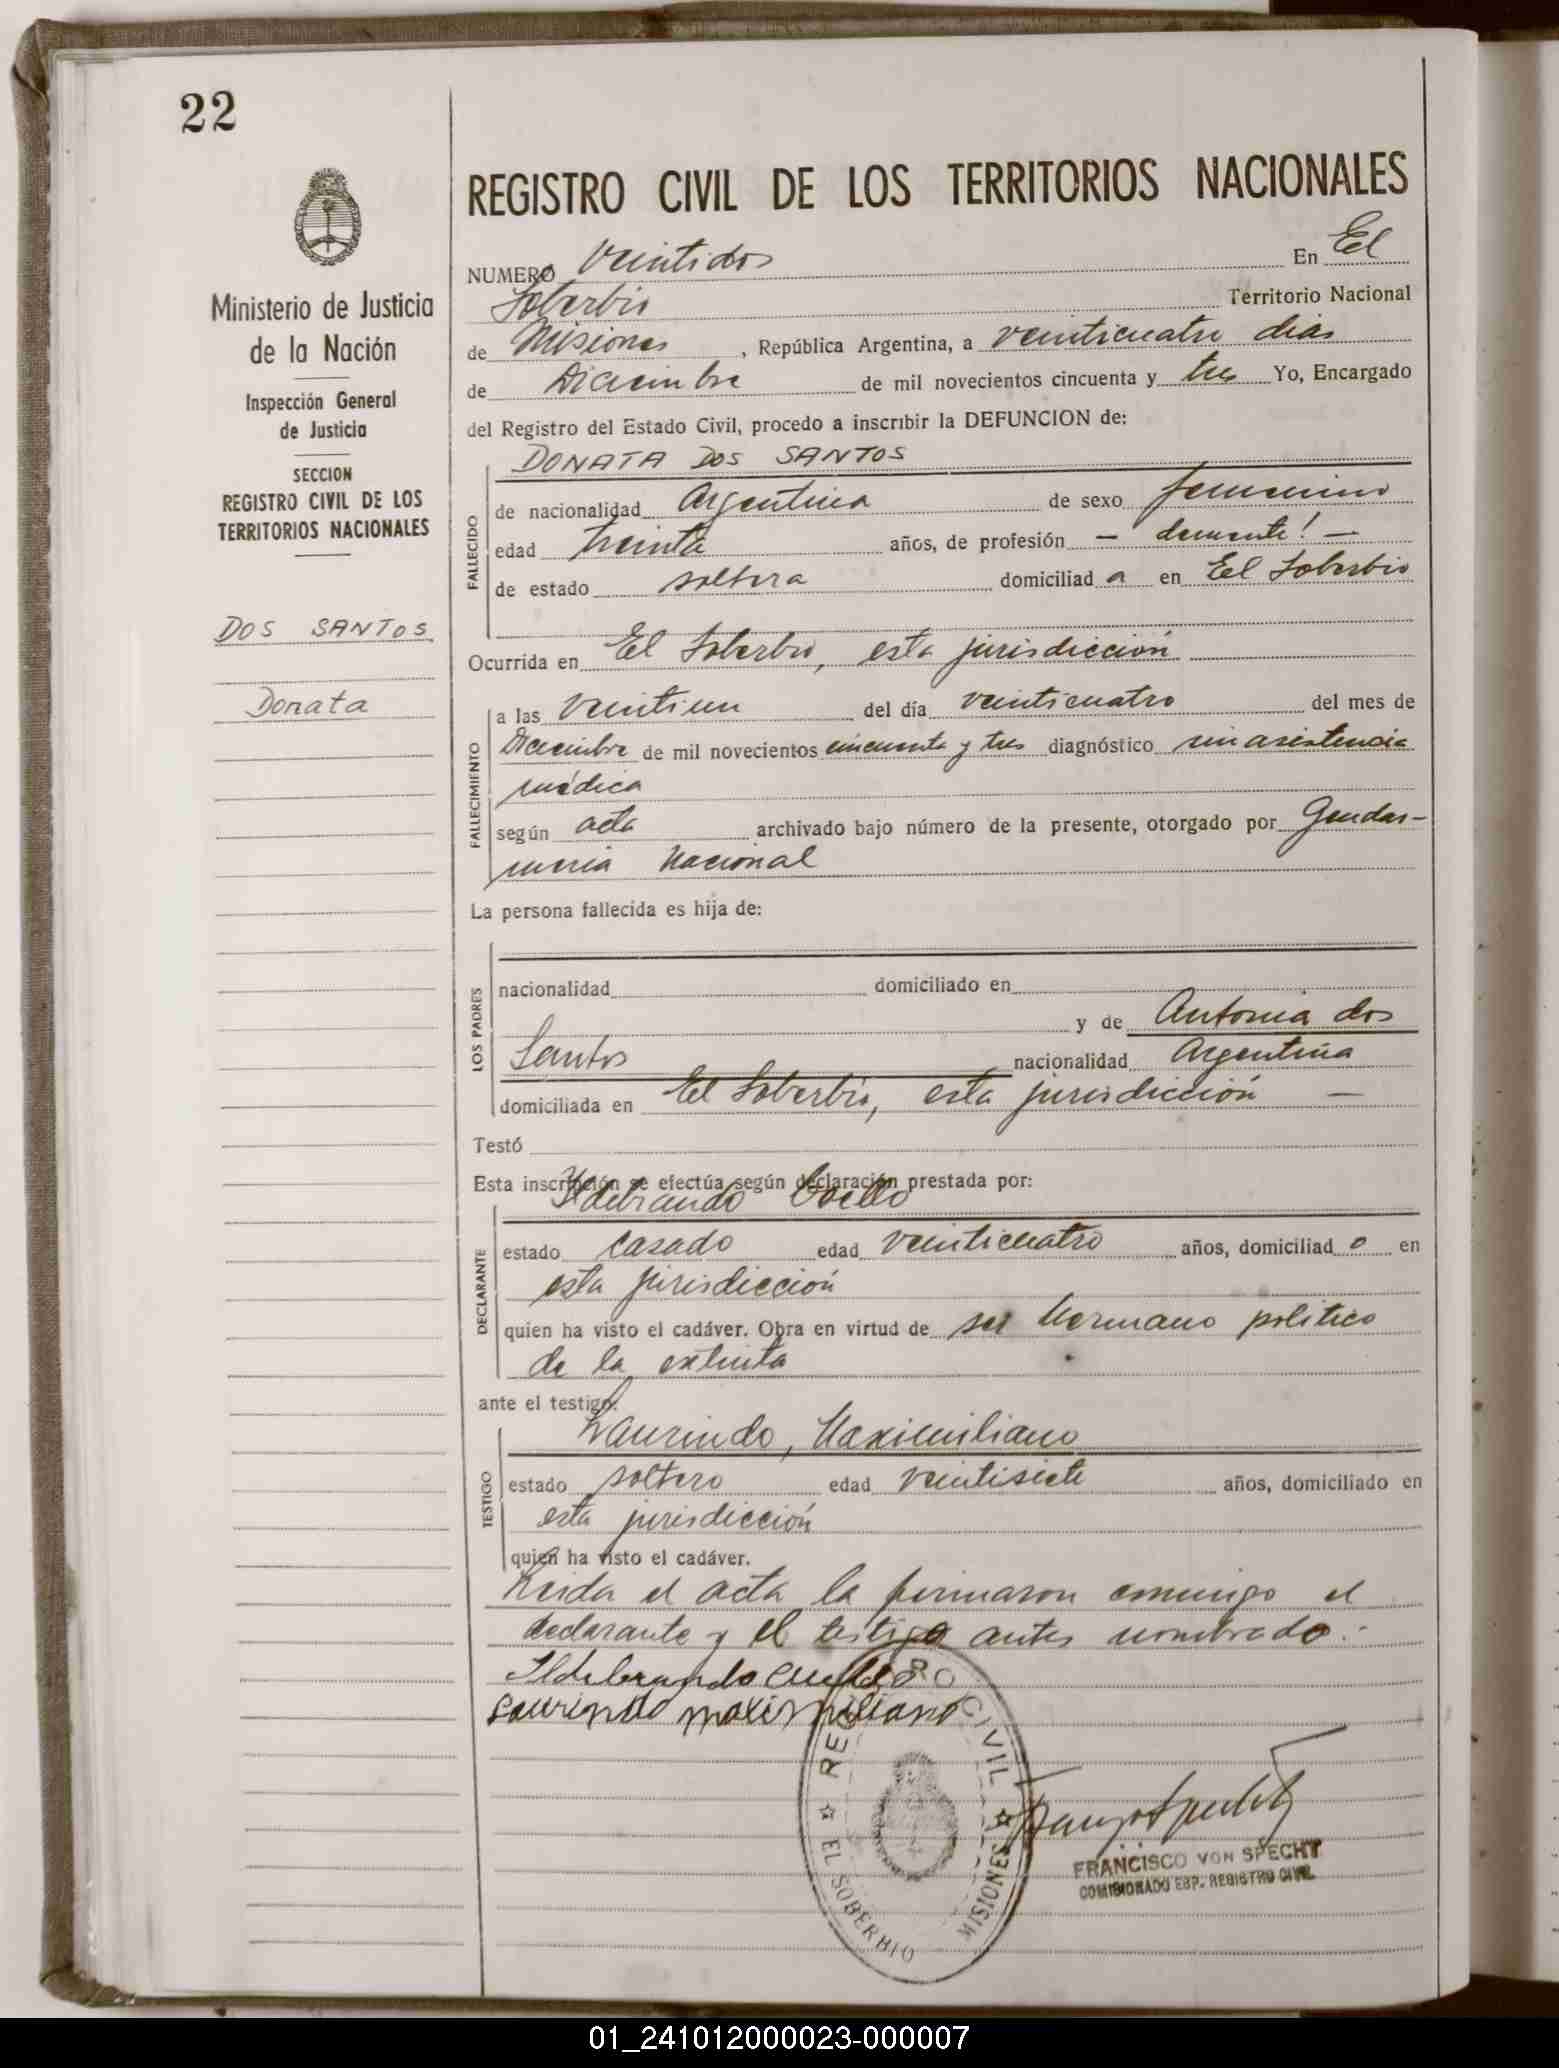 22
REGISTRO CIVIL DE LOS TERRITORIOS NACIONALES
Ministerio de Justicia
de la Nación
Inspección General
de Justicia
SECCION
REGISTRO CIVIL DE LOS
TERRITORIOS NACIONALES
DOS SANTOS
Donata
NUMERO Veintidos En El
Soberbio Territorio Nacional
de Misiones, República Argentina, a veinticuatro dias
de Diciembre de mil novecientos cincuenta y tres Yo, Encargado
del Registro del Estado Civil, procedo a inscribir la DEFUNCION de:
DONATA DOS SANTOS
FALLECIDO
de nacionalidad Argentina de sexo femenino
edad treinta años, de profesión — demente! —
de estado soltera domiciliad a en El Soberbio
Ocurrida en El Soberbio, esta jurisdicción
FALLECIMIENTO
a las veintiun del día veinticuatro del mes de
Diciembre de mil novecientos cincuenta y tres diagnóstico sin asistencia
médica
según acta archivado bajo número de la presente, otorgado por Gendar-
meria Nacional
La persona fallecida es hija de:
LOS PADRES
nacionalidad domiciliado en
y de Antonia dos
Santos nacionalidad Argentina
domiciliada en El Soberbio, esta jurisdicción —
Testó
Esta inscripción se efectúa según declaración prestada por:
Ildebrando
DECLARANTE
estado casado edad veinticuatro años, domiciliad o en
esta jurisdicción
quien ha visto el cadáver. Obra en virtud de ser hermano politico
de la extinta
ante el testigo:
Laurindo, Maximiliano
TESTIGO
estado soltero edad veintisiete años, domiciliado en
esta jurisdicción
quien ha visto el cadáver.
Leida el acta la firmaron conmigo el
declarante y el testigo antes nombrado.-
Ildebrando
Laurindo maximiliano
REGISTRO CIVIL
EL SOBERBIO MISIONES
FRANCISCO VON SPECHT
COMISIONADO ESP. REGISTRO CIVIL
01_241012000023-000007